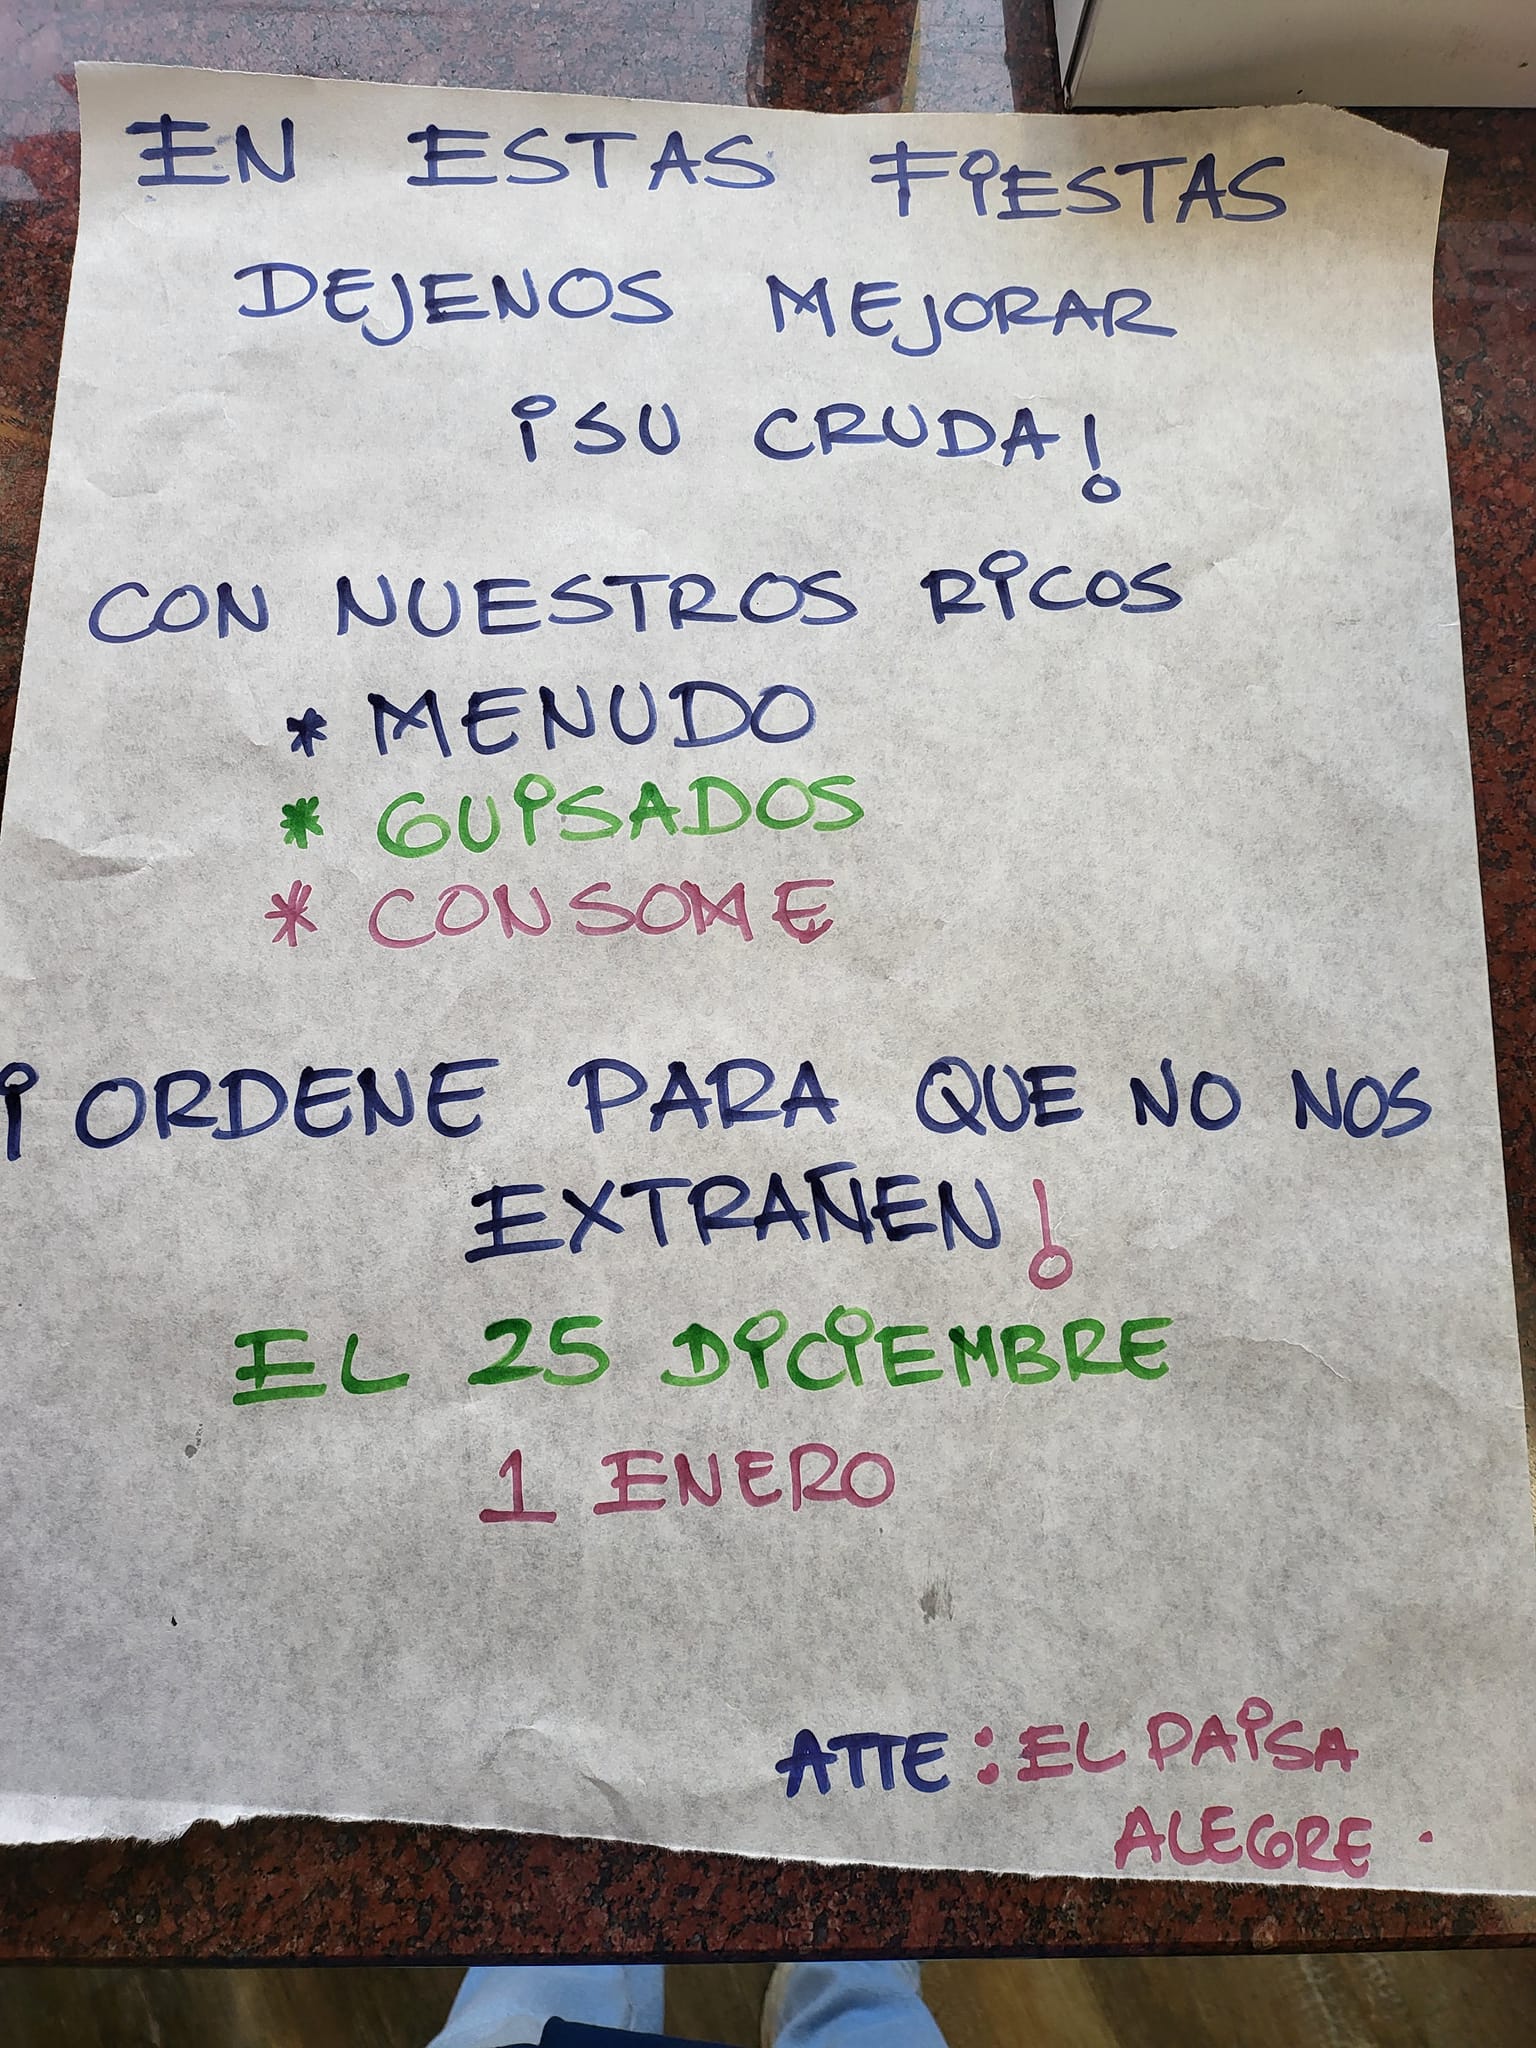 EN ESTAS FiESTAS
DEJENOS MEJORAR
¡SU CRUDA!
CON NUESTROS RiCOS
* MENUDO
* GUiSADOS
* CONSOME
¡ORDENE PARA QUE NO NOS
EXTRAÑEN!
EL 25 DiCiEMBRE
1 ENERO
ATTE: EL PAiSA
ALEGRE.